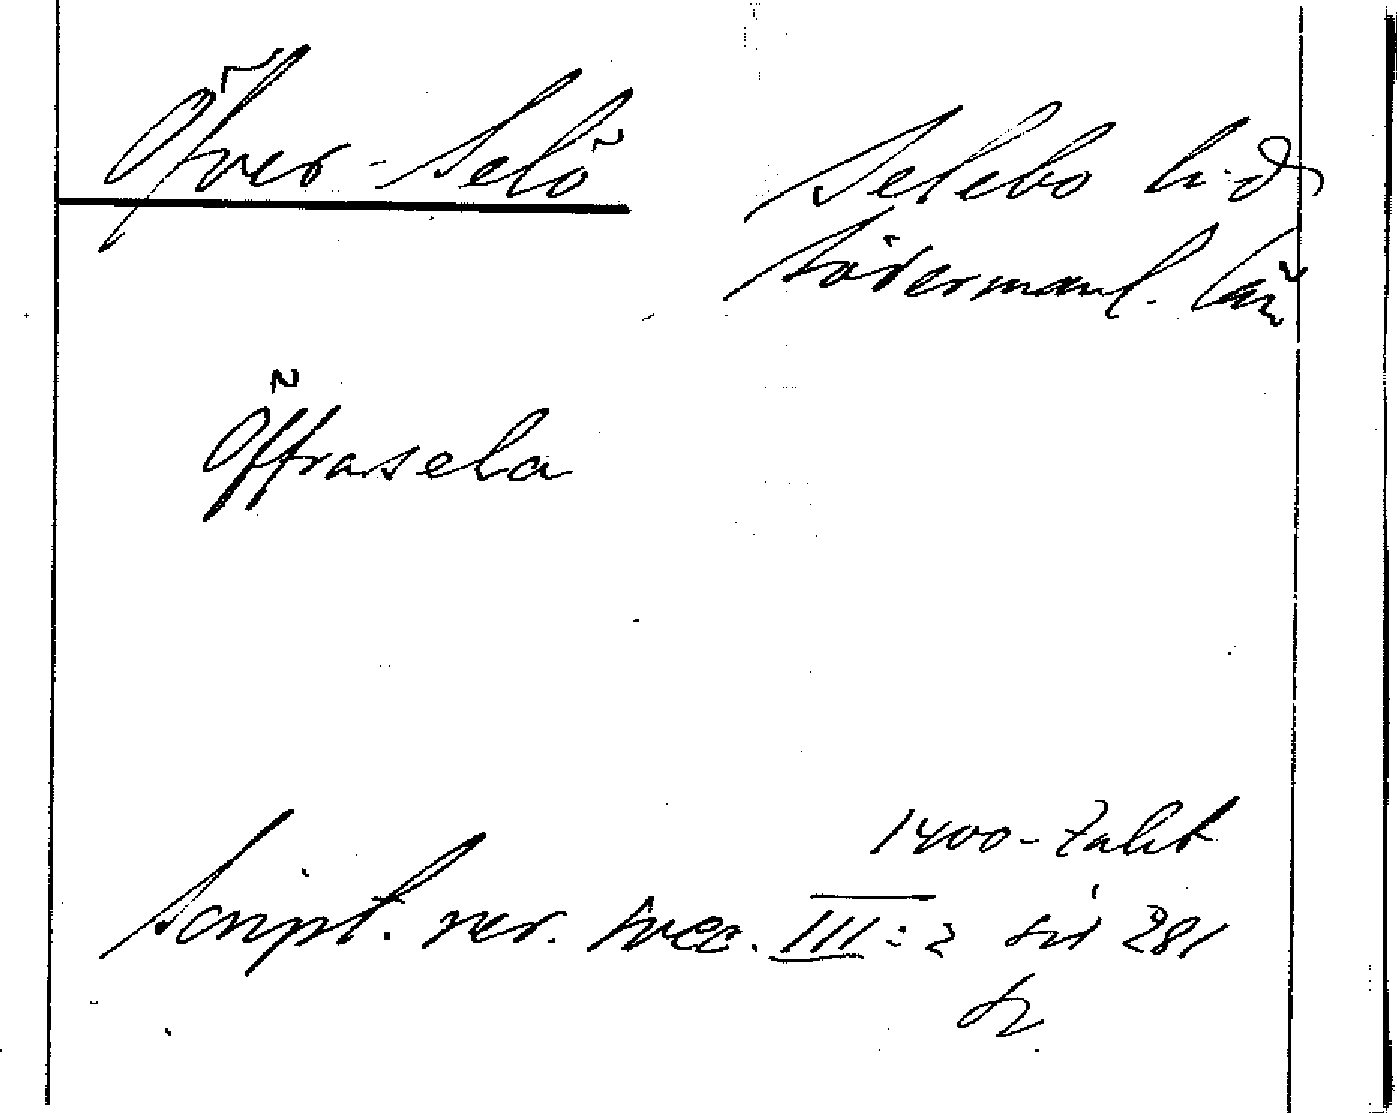 Öfver-Selö
Selebo h-d
Södermanl. län
Öffrasela
1400-talet
Script. rer. svec. III:2 sid 281